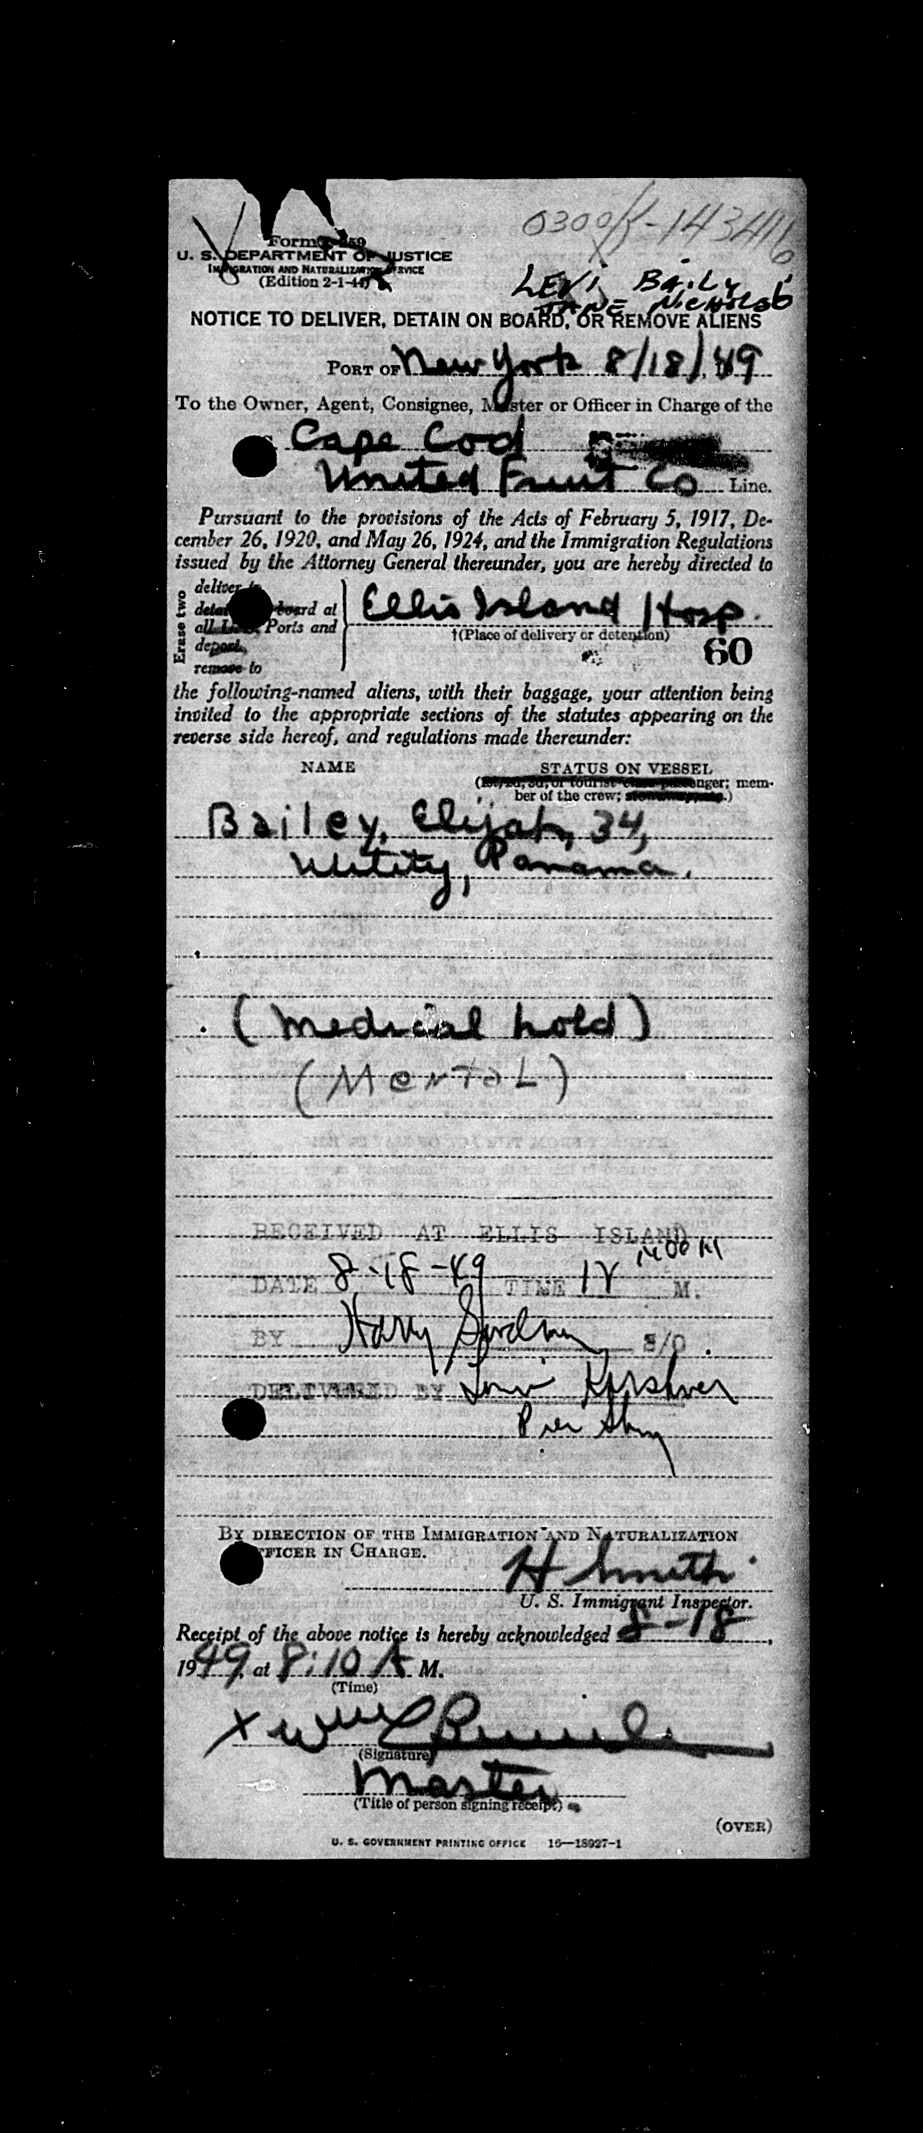 0300/
Form I-259
U. S. DEPARTMENT OF JUSTICE
IMMIGRATION AND NATURALIZATION SERVICE
(Edition 2-1-44)
LEVI BAILY
JANE NICHOLSO
NOTICE TO DELIVER, DETAIN ON BOARD, OR REMOVE ALIENS
PORT OF New York 8/18/, 49
To the Owner, Agent, Consignee, Master or Officer in Charge of the
Cape Cod
United Fruit Co Line.
Pursuant to the provisions of the Acts of February 5, 1917, De-
cember 26, 1920, and May 26, 1924, and the Immigration Regulations
issued by the Attorney General thereunder, you are hereby directed to
Erase two
deliver to
detain on board at
all U. S. Ports and
deport,
remove to
Ellis Island Hosp.
†(Place of delivery or detention)
60
the following-named aliens, with their baggage, your attention being
invited to the appropriate sections of the statutes appearing on the
reverse side hereof, and regulations made thereunder:
NAME STATUS ON VESSEL
(1st, 2d, 3d, or tourist class passenger; mem-
ber of the crew; stowaway.)
Bailey, Elijah, 34,
Utility, Panama.
(medical hold)
(Mental)
RECEIVED AT ELLIS ISLAND
DATE 8-18-49 TIME 12 M.
BY Harry S/O
DELIVERED BY Kershner
Pier
BY DIRECTION OF THE IMMIGRATION AND NATURALIZATION
OFFICER IN CHARGE.
H Smith
U. S. Immigrant Inspector.
Receipt of the above notice is hereby acknowledged 8-18,
1949, at 8:10 A M.
(Time)
X
(Signature)
Master
(Title of person signing receipt)
(OVER)
U. S. GOVERNMENT PRINTING OFFICE 16—18927-1